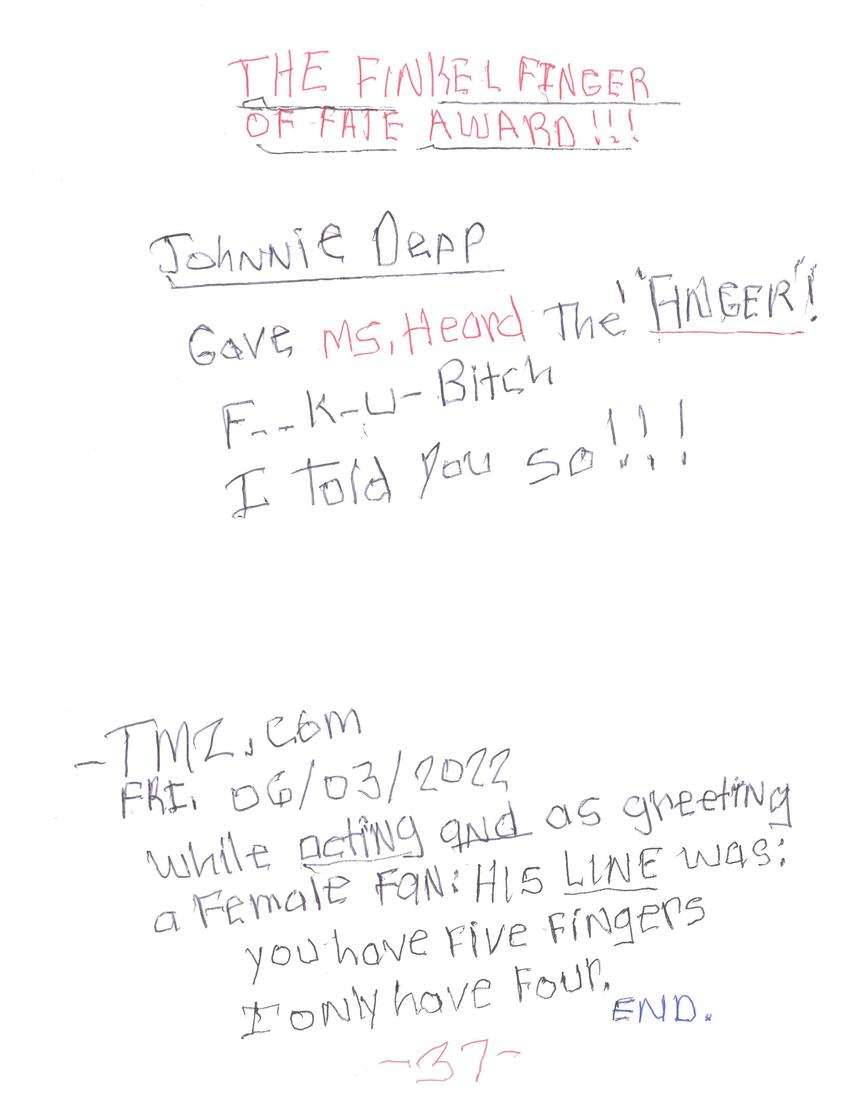 THE FINKEL FINGER
OF FATE AWARD!!!
Johnnie Depp
Gave Ms. Heard The "FINGER"!
F--K-U-Bitch
I Told You so!!!
-TMZ.com
FRI. 06/03/2022
while acting and as greeting
a Female FAN: HIS LINE was:
you have Five Fingers
I only have Four.
END.
-37-